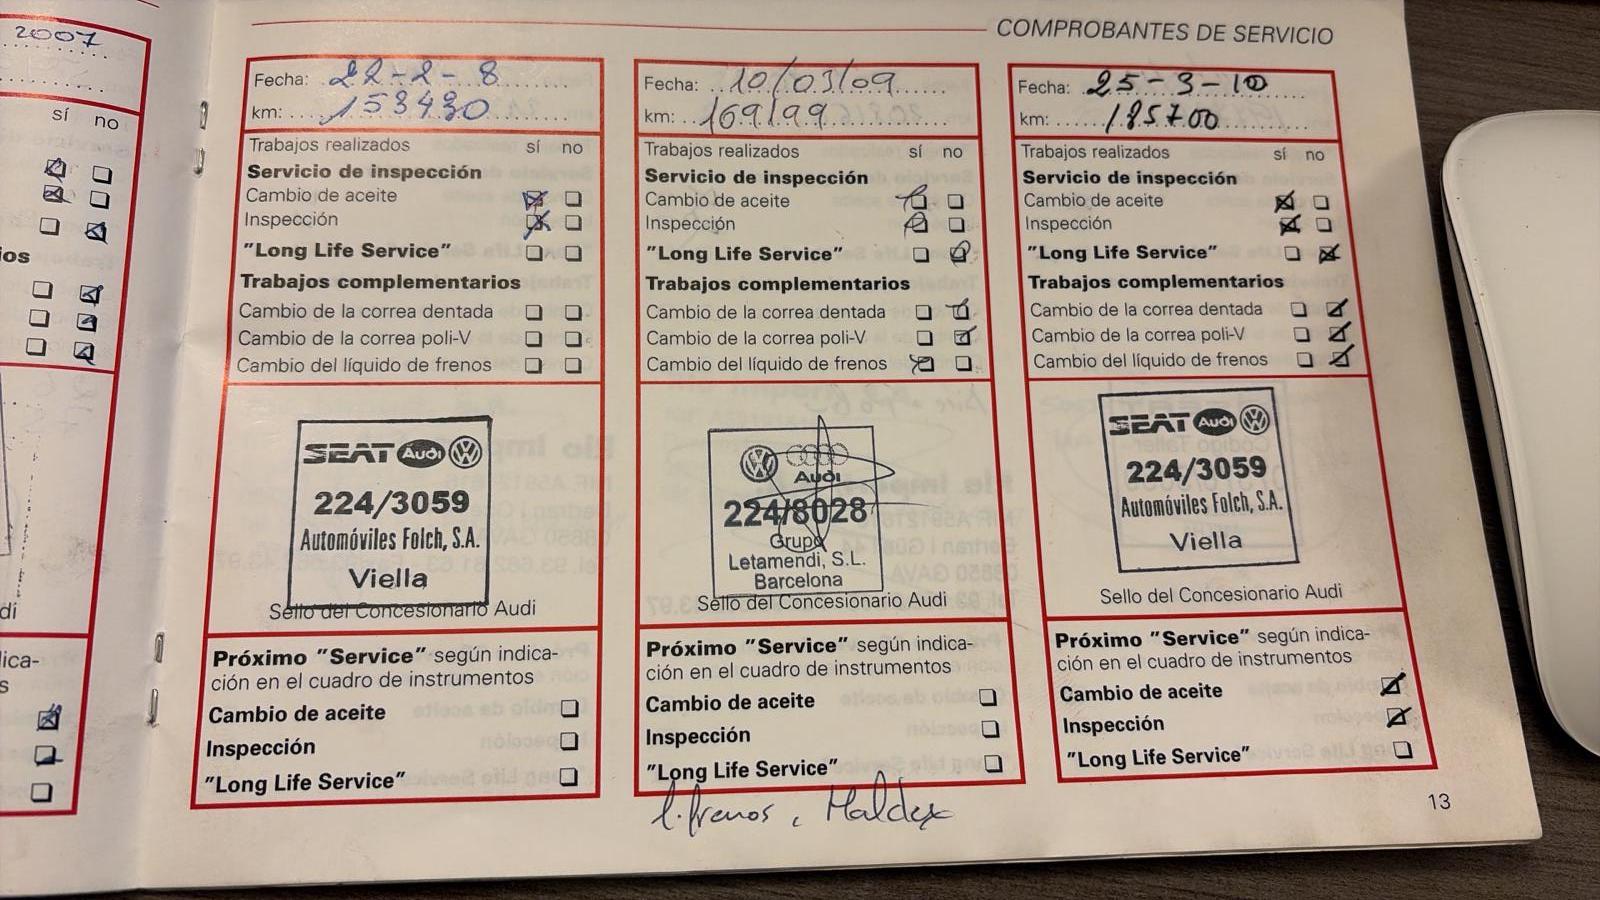 2007
sí no
COMPROBANTES DE SERVICIO
Fecha: 22-2-8
km: 153430
Trabajos realizados sí no
Servicio de inspección
Cambio de aceite
Inspección
"Long Life Service"
Trabajos complementarios
Cambio de la correa dentada
Cambio de la correa poli-V
Cambio del líquido de frenos
SEAT Audi
224/3059
Automóviles Folch, S.A.
Viella
Sello del Concesionario Audi
Próximo "Service" según indica-
ción en el cuadro de instrumentos
Cambio de aceite
Inspección
"Long Life Service"
Fecha: 10/03/09
km: 169199
Trabajos realizados sí no
Servicio de inspección
Cambio de aceite
Inspección
"Long Life Service"
Trabajos complementarios
Cambio de la correa dentada
Cambio de la correa poli-V
Cambio del líquido de frenos
Audi
224/8028
Grupo
Letamendi, S.L.
Barcelona
Sello del Concesionario Audi
Próximo "Service" según indica-
ción en el cuadro de instrumentos
Cambio de aceite
Inspección
"Long Life Service"
l. frenos, Haldex
Fecha: 25-3-10
km: 185700
Trabajos realizados sí no
Servicio de inspección
Cambio de aceite
Inspección
"Long Life Service"
Trabajos complementarios
Cambio de la correa dentada
Cambio de la correa poli-V
Cambio del líquido de frenos
SEAT Audi
224/3059
Automóviles Folch, S.A.
Viella
Sello del Concesionario Audi
Próximo "Service" según indica-
ción en el cuadro de instrumentos
Cambio de aceite
Inspección
"Long Life Service"
13